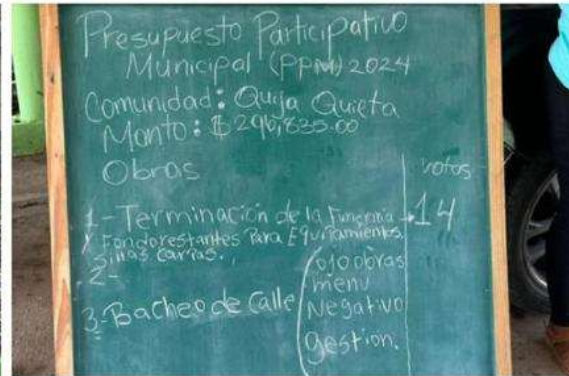 Presupuesto Participativo
Municipal (PPM) 2024
Comunidad: Quija Quieta
Monto: $296,835.00
Obras
votos
1-Terminación de la Funeraria → 14
y Fondo restantes Para Equipamientos.
Sillas Carpas.
2-
3-Bacheo de Calle
(ojo obras
menu
Negativo
gestion.